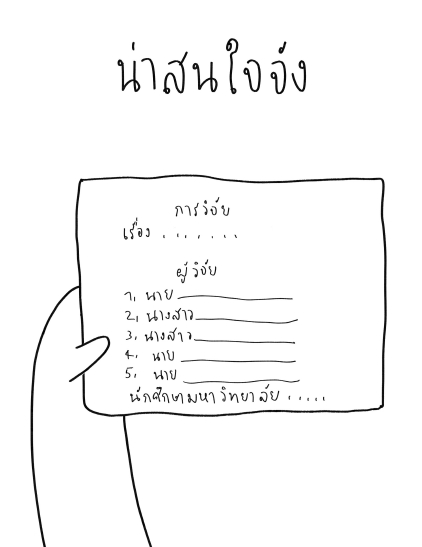 น่าสนใจจัง
การวิจัย
เรื่อง .......
ผู้วิจัย
1, นาย
2, นางสาว
3, นางสาว
4. นาย
5. นาย
นักศึกษามหาวิทยาลัย .....